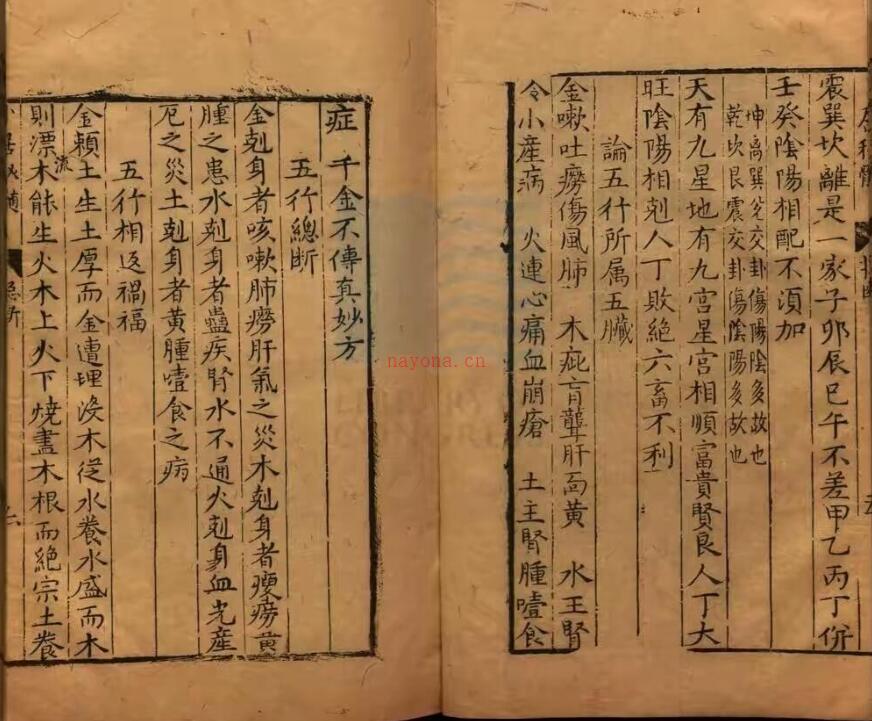 震巽坎離是一家子卯辰巳午不差甲乙丙丁併
壬癸陰陽相配不須加
坤离巽兌交卦傷陽陰多故也
乾坎艮震交卦傷陰陽多故也
天有九星地有九宮星宮相順富貴賢良人丁大
旺陰陽相剋人丁敗絕六畜不利
論五行所属五臟
金嗽吐癆傷風肺 木疵盲聾肝面黃 水王腎
令小產病 火連心痛血崩瘡 土主腎腫噎食
症 千金不傳真妙方
五行總斷
金剋身者咳嗽肺癆肝氣之災木剋身者瘦癆黃
腫之患水剋身者蠱疾腎水不通火剋身血光產
厄之災土剋身者黃腫噎食之病
五行相返禍福
金頼土生土厚而金遭埋沒木從水養水盛而木
則漂流木能生火木上火下燒盡木根而絕宗土養
nayona.cn